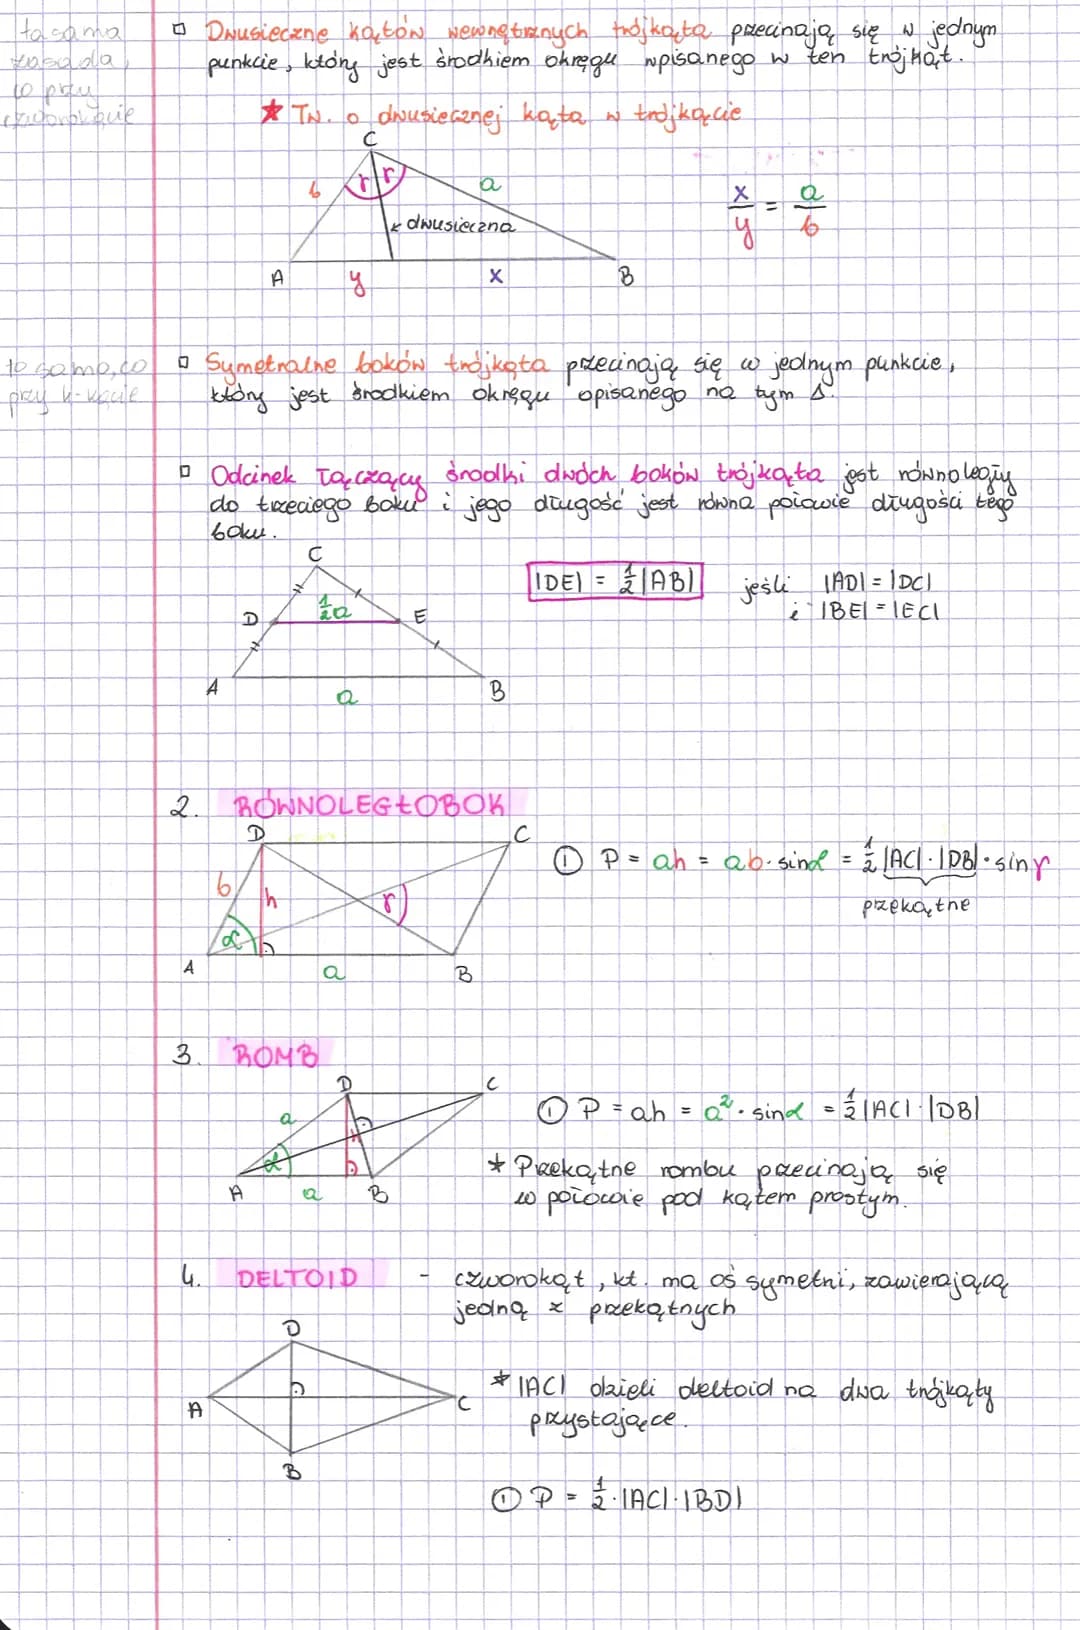 ta sama
zasada,
co przy
czworokącie
▫ Dwusieczne kątów wewnętrznych trójkąta przecinają się w jednym
punkcie, który jest środkiem okręgu wpisanego w ten trójkąt.
★ Tw. o dwusiecznej kąta w trójkącie
C
b γ γ a
dwusieczna
A y x B
x/y = a/b
to samo, co
przy 4-kącie
▫ Symetralne boków trójkąta przecinają się w jednym punkcie,
który jest środkiem okręgu opisanego na tym Δ.
▫ Odcinek łączący środki dwóch boków trójkąta jest równoległy
do trzeciego boku i jego długość jest równa połowie długości tego
boku.
C
D ½a E
A a B
|DE| = ½|AB| jeśli |AD| = |DC|
i |BE| = |EC|
2. RÓWNOLEGŁOBOK
D C
b h γ
α
A a B
① P = ah = ab·sinα = ½|AC|·|DB|·sinγ
przekątne
3. ROMB
D C
a
α
A a B
① P = ah = a²·sinα = ½|AC|·|DB|
* Przekątne rombu przecinają się
w połowie pod kątem prostym.
4. DELTOID - czworokąt, kt. ma oś symetrii, zawierającą
jedną z przekątnych
D
A C
B
* |AC| dzieli deltoid na dwa trójkąty
przystające.
① P = ½·|AC|·|BD|